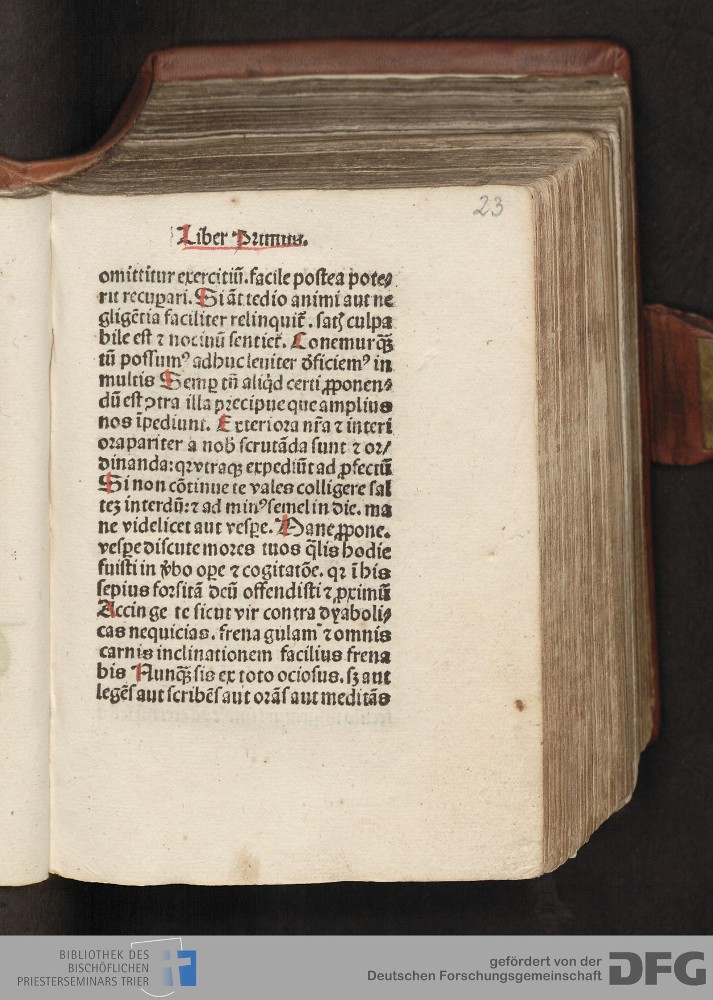 23
Liber Primus.
omittitur exercitiū. facile postea pote⸗
rit recuꝑari. Si āt tedio animi aut ne
gligētia faciliter relinquit᷑. satꝭ culpa
bile est ⁊ nociuū sentiet᷑. Conemur q̄ꝫ
tū possumꝰ adhuc leuiter d̄ficiemꝰ in
multis Semꝑ tn̄ aliq̇d certi ꝓponen⸗
dū est ↄtra illa precipue que amplius
nos īpediunt. Exteriora nr̄a ⁊ interi
ora pariter a nob̄ scrutāda sunt ⁊ or/
dinanda: qꝛ vtraqꝫ expediūt ad ꝓfectū
Si non cōtinue te vales colligere sal
teꝫ interdū: ⁊ ad minꝰ semel in die. ma
ne videlicet aut vesꝑe. Mane ꝓpone.
vesꝑe discute mores tuos q̄lis hodie
fuisti in v̄bo oꝑe ⁊ cogitatōe. qꝛ ī his
sepius forsitā deū offendisti ⁊ ꝓximū
Accinge te sicut vir contra dyaboli⸗
cas nequicias. frena gulam ⁊ omnis
carnis inclinationem facilius frena
bis Nunq̄ꝫ sis ex toto ociosus. sꝫ aut
legēs aut scribēs aut orās aut meditās
BIBLIOTHEK DES
BISCHÖFLICHEN
PRIESTERSEMINARS TRIER
gefördert von der
Deutschen Forschungsgemeinschaft
DFG